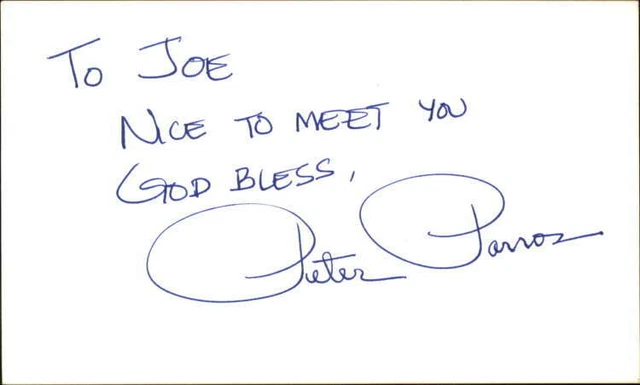 To JOE
NICE TO MEET YOU
GOD BLESS,
Peter Parros